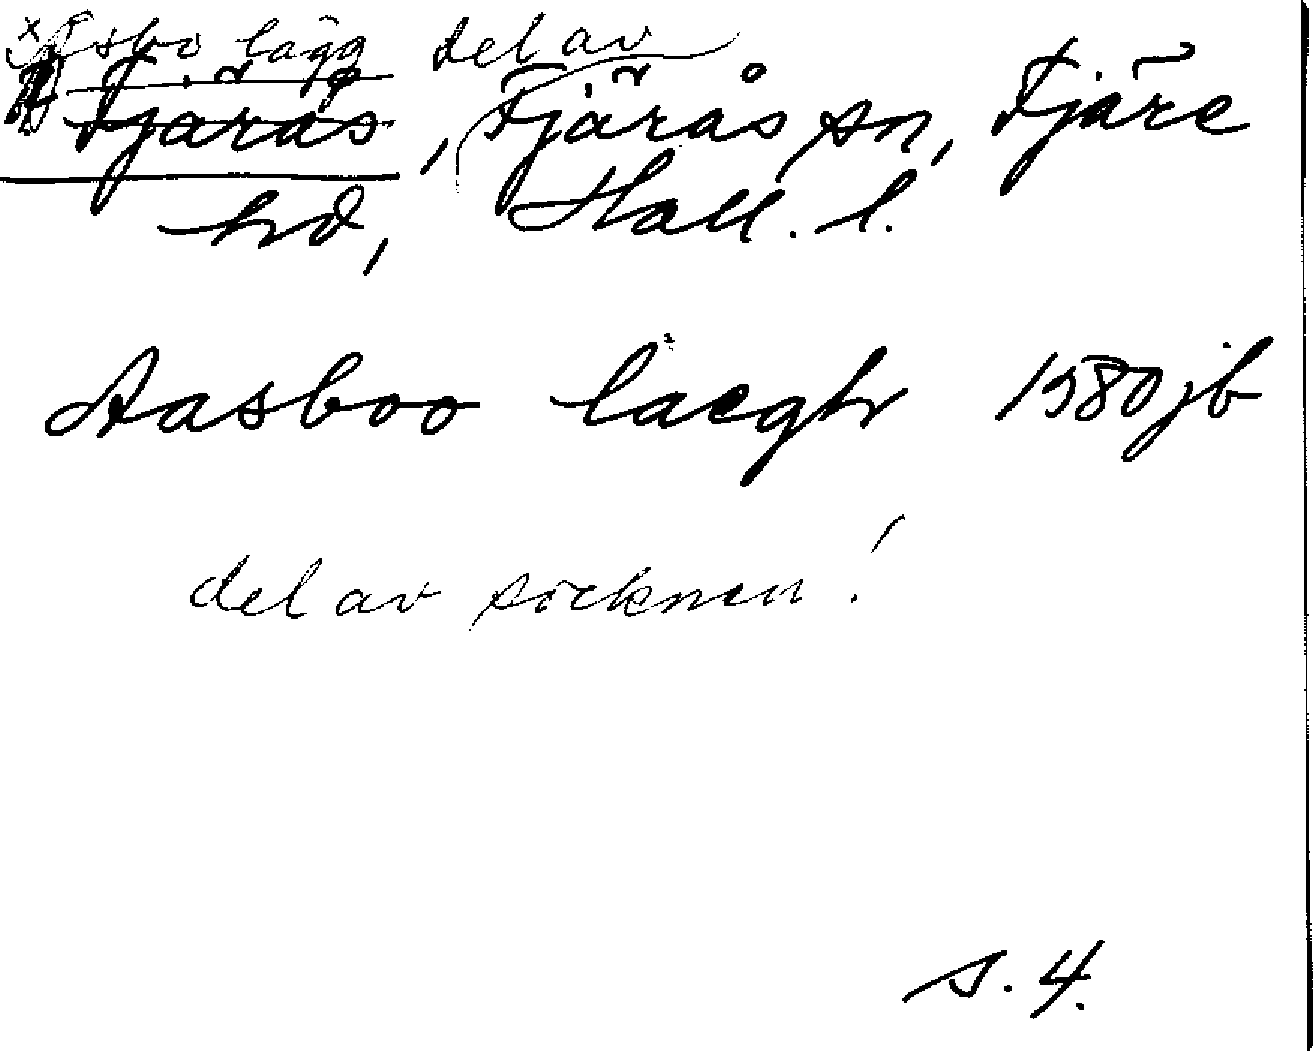 xÅsbo lägg del av
Fjärås, Fjärås sn, Fjäre
hd, Hall. l.
Aasboo laegh 1580 jb
del av socknen!
s. 4.